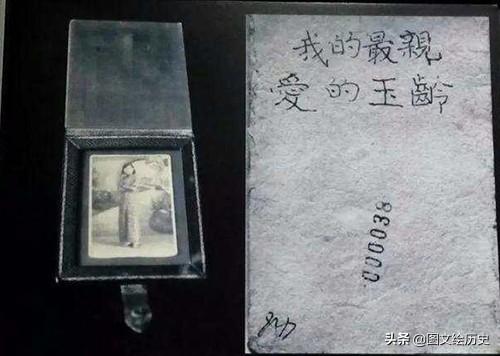 我的最親
愛的玉齡
000038
头条 @图文绘历史